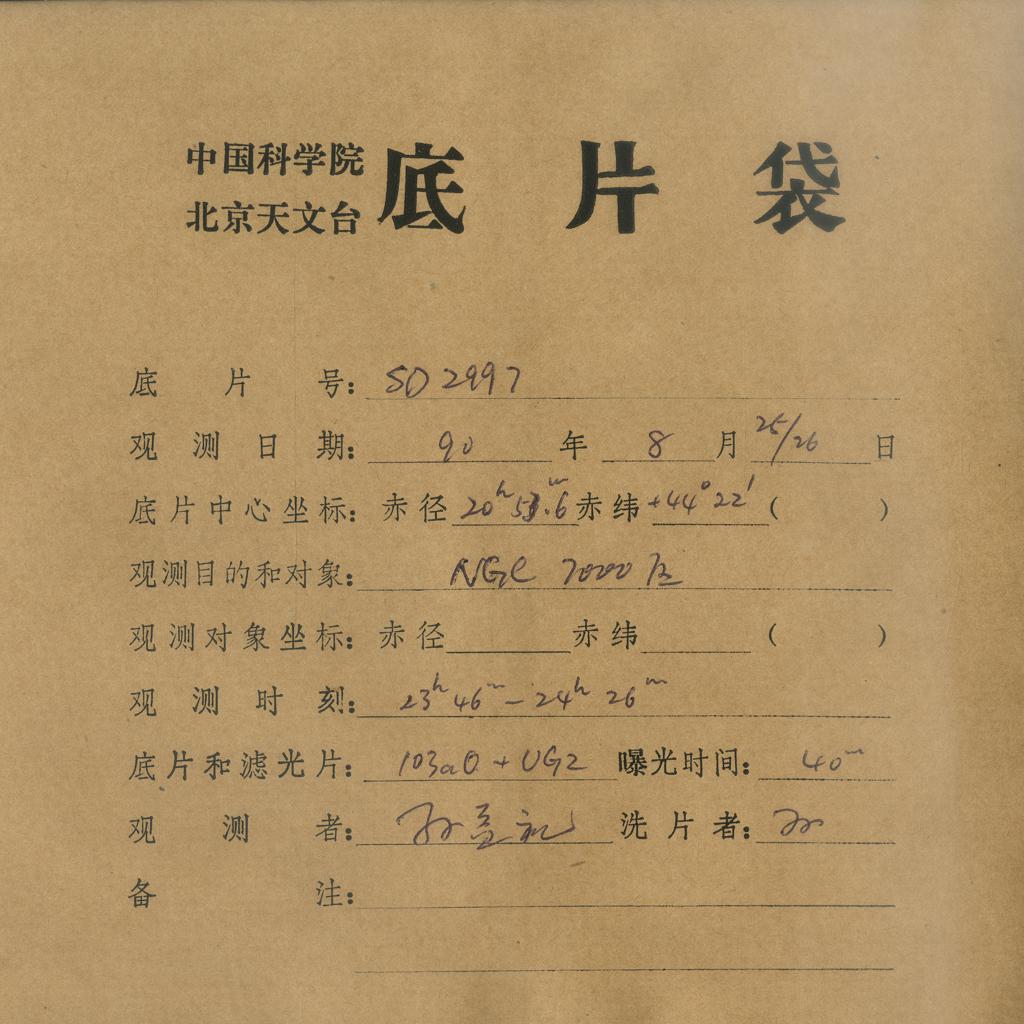 中国科学院
北京天文台 底片袋
底片号: SO 2997
观测日期: 90 年 8 月 25/26 日
底片中心坐标: 赤径 20ʰ 53.6ᵐ 赤纬 +44° 22′ ( )
观测目的和对象: NGC 7000 区
观测对象坐标: 赤径 赤纬 ( )
观测时刻: 23ʰ 46ᵐ — 24ʰ 26ᵐ
底片和滤光片: 103aO + UG2 曝光时间: 40ᵐ
观测者: 孙益礼 洗片者: 孙
备注: